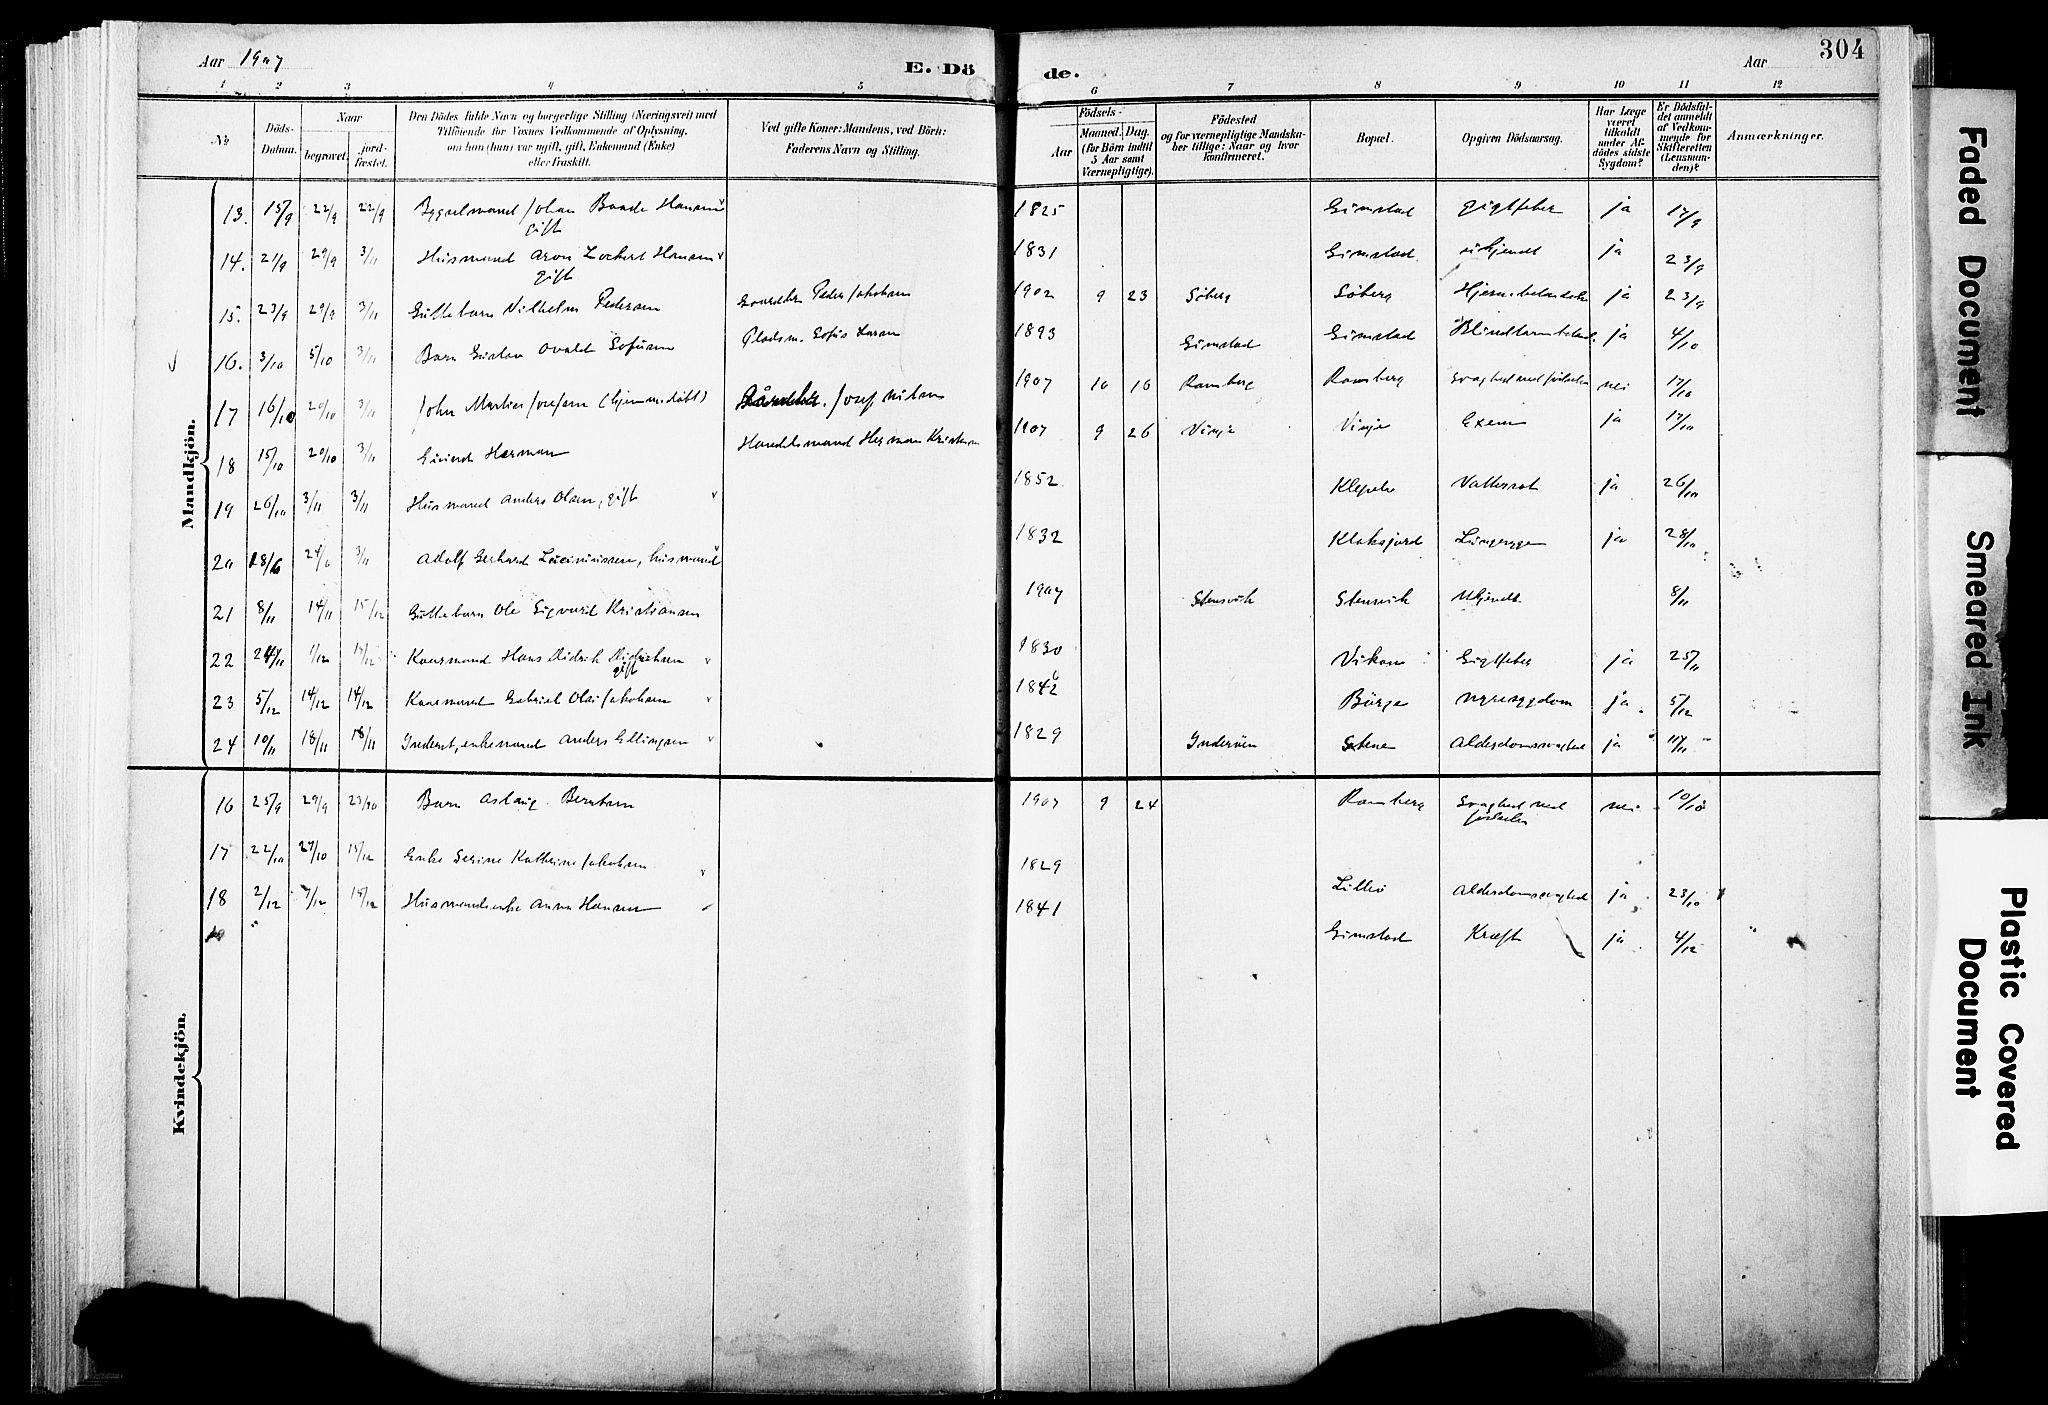 Aar 1907
E. Döde.
Aar
304
1 2 3 4 5 6 7 8 9 10 11 12
No.
Döds-Datum.
Naar
begravet.
jord-fæstet.
Den Dödes fulde Navn og borgerlige Stilling (Næringsvei) med
Tilföiende for Voxnes Vedkommende af Oplysning,
om han (hun) var ugift, gift, Enkemand (Enke)
eller fraskilt.
Ved gifte Koner: Mandens, ved Börn:
Faderens Navn og Stilling.
Födsels-
Aar
Maaned. Dag.
(for Börn indtil
5 Aar samt
Værnepligtige).
Födested
og for værnepligtige Mandska-
ber tillige: Naar og hvor
konfirmeret.
Bopæl.
Opgiven Dödsaarsag.
Har Læge
været
tilkaldt
under Af-
dödes sidste
Sygdom?
Er Dödsfal-
det anmeldt
af Vedkom-
mende for
Skifteretten
(Lensman-
den)?
Anmærkninger.
Mandkjön.
13. 15/9 22/9 22/9 Johan Baade Hansen gift 1825 Gimstad gigtfeber ja 17/9
14. 21/9 29/9 3/11 Husmand Aron Lockert Hansen gift 1831 Gimstad ukjendt ja 23/9
15. 23/9 29/9 3/11 Guttebarn Vilhelm Pedersen Gaardbr Peder Jakobsen 1902 9 23 Söberg Söberg ja 23/9
16. 3/10 5/10 3/11 Barn Gustav Ovald Sofusen Pladsm. Sofus Larsen 1893 Gimstad Gimstad ja 4/10
17 16/10 20/10 3/11 John Martin Josefsen (hjemmedöbt) Josef Nilsen 1907 10 16 Ramberg Ramberg Svaghed ved födselen nei 17/10
18 15/10 20/10 3/11 Eivind Herman Handelsmand Herman Kristensen 1907 9 26 Vinje Vinje Exem ja 17/10
19 26/10 3/11 3/11 Husmand Anders Olsen, gift 1852 Vattersot ja 26/10
20 18/6 24/6 3/11 Adolf Gerhard husmand 1832 Klaksjord ja 28/10
21 8/11 14/11 15/12 Guttebarn Ole Sigvard Kristiansen 1907 Stensvik Stensvik Ukjendt 8/11
22 24/11 1/12 15/12 Kaarmand Hans Didrik Didriksen gift 1830 Vikan Gigtfeber ja 25/11
23 5/12 14/12 14/12 Kaarmand Gabriel Olai Jakobsen 1842 Börge Nyresygdom ja 5/12
24 10/11 18/11 18/11 Inderst, enkemand Anders Ellingsen 1829 Inderöen Stene Alderdomssvaghed ja 11/11
Kvindekjön.
16 25/9 29/9 Barn Aslaug Berntsen 1907 9 24 Ramberg Svaghed ved födselen nei 10/10
17 22/10 27/10 15/12 Enke Serine Kathrine Jakobsen 1829 Lillö Alderdomssvaghed ja 23/10
18 2/12 7/12 15/12 Husmandsenke Anna Hansen 1841 Gimstad Kræft ja 4/12
Faded Document
Smeared Ink
Plastic Covered
Document